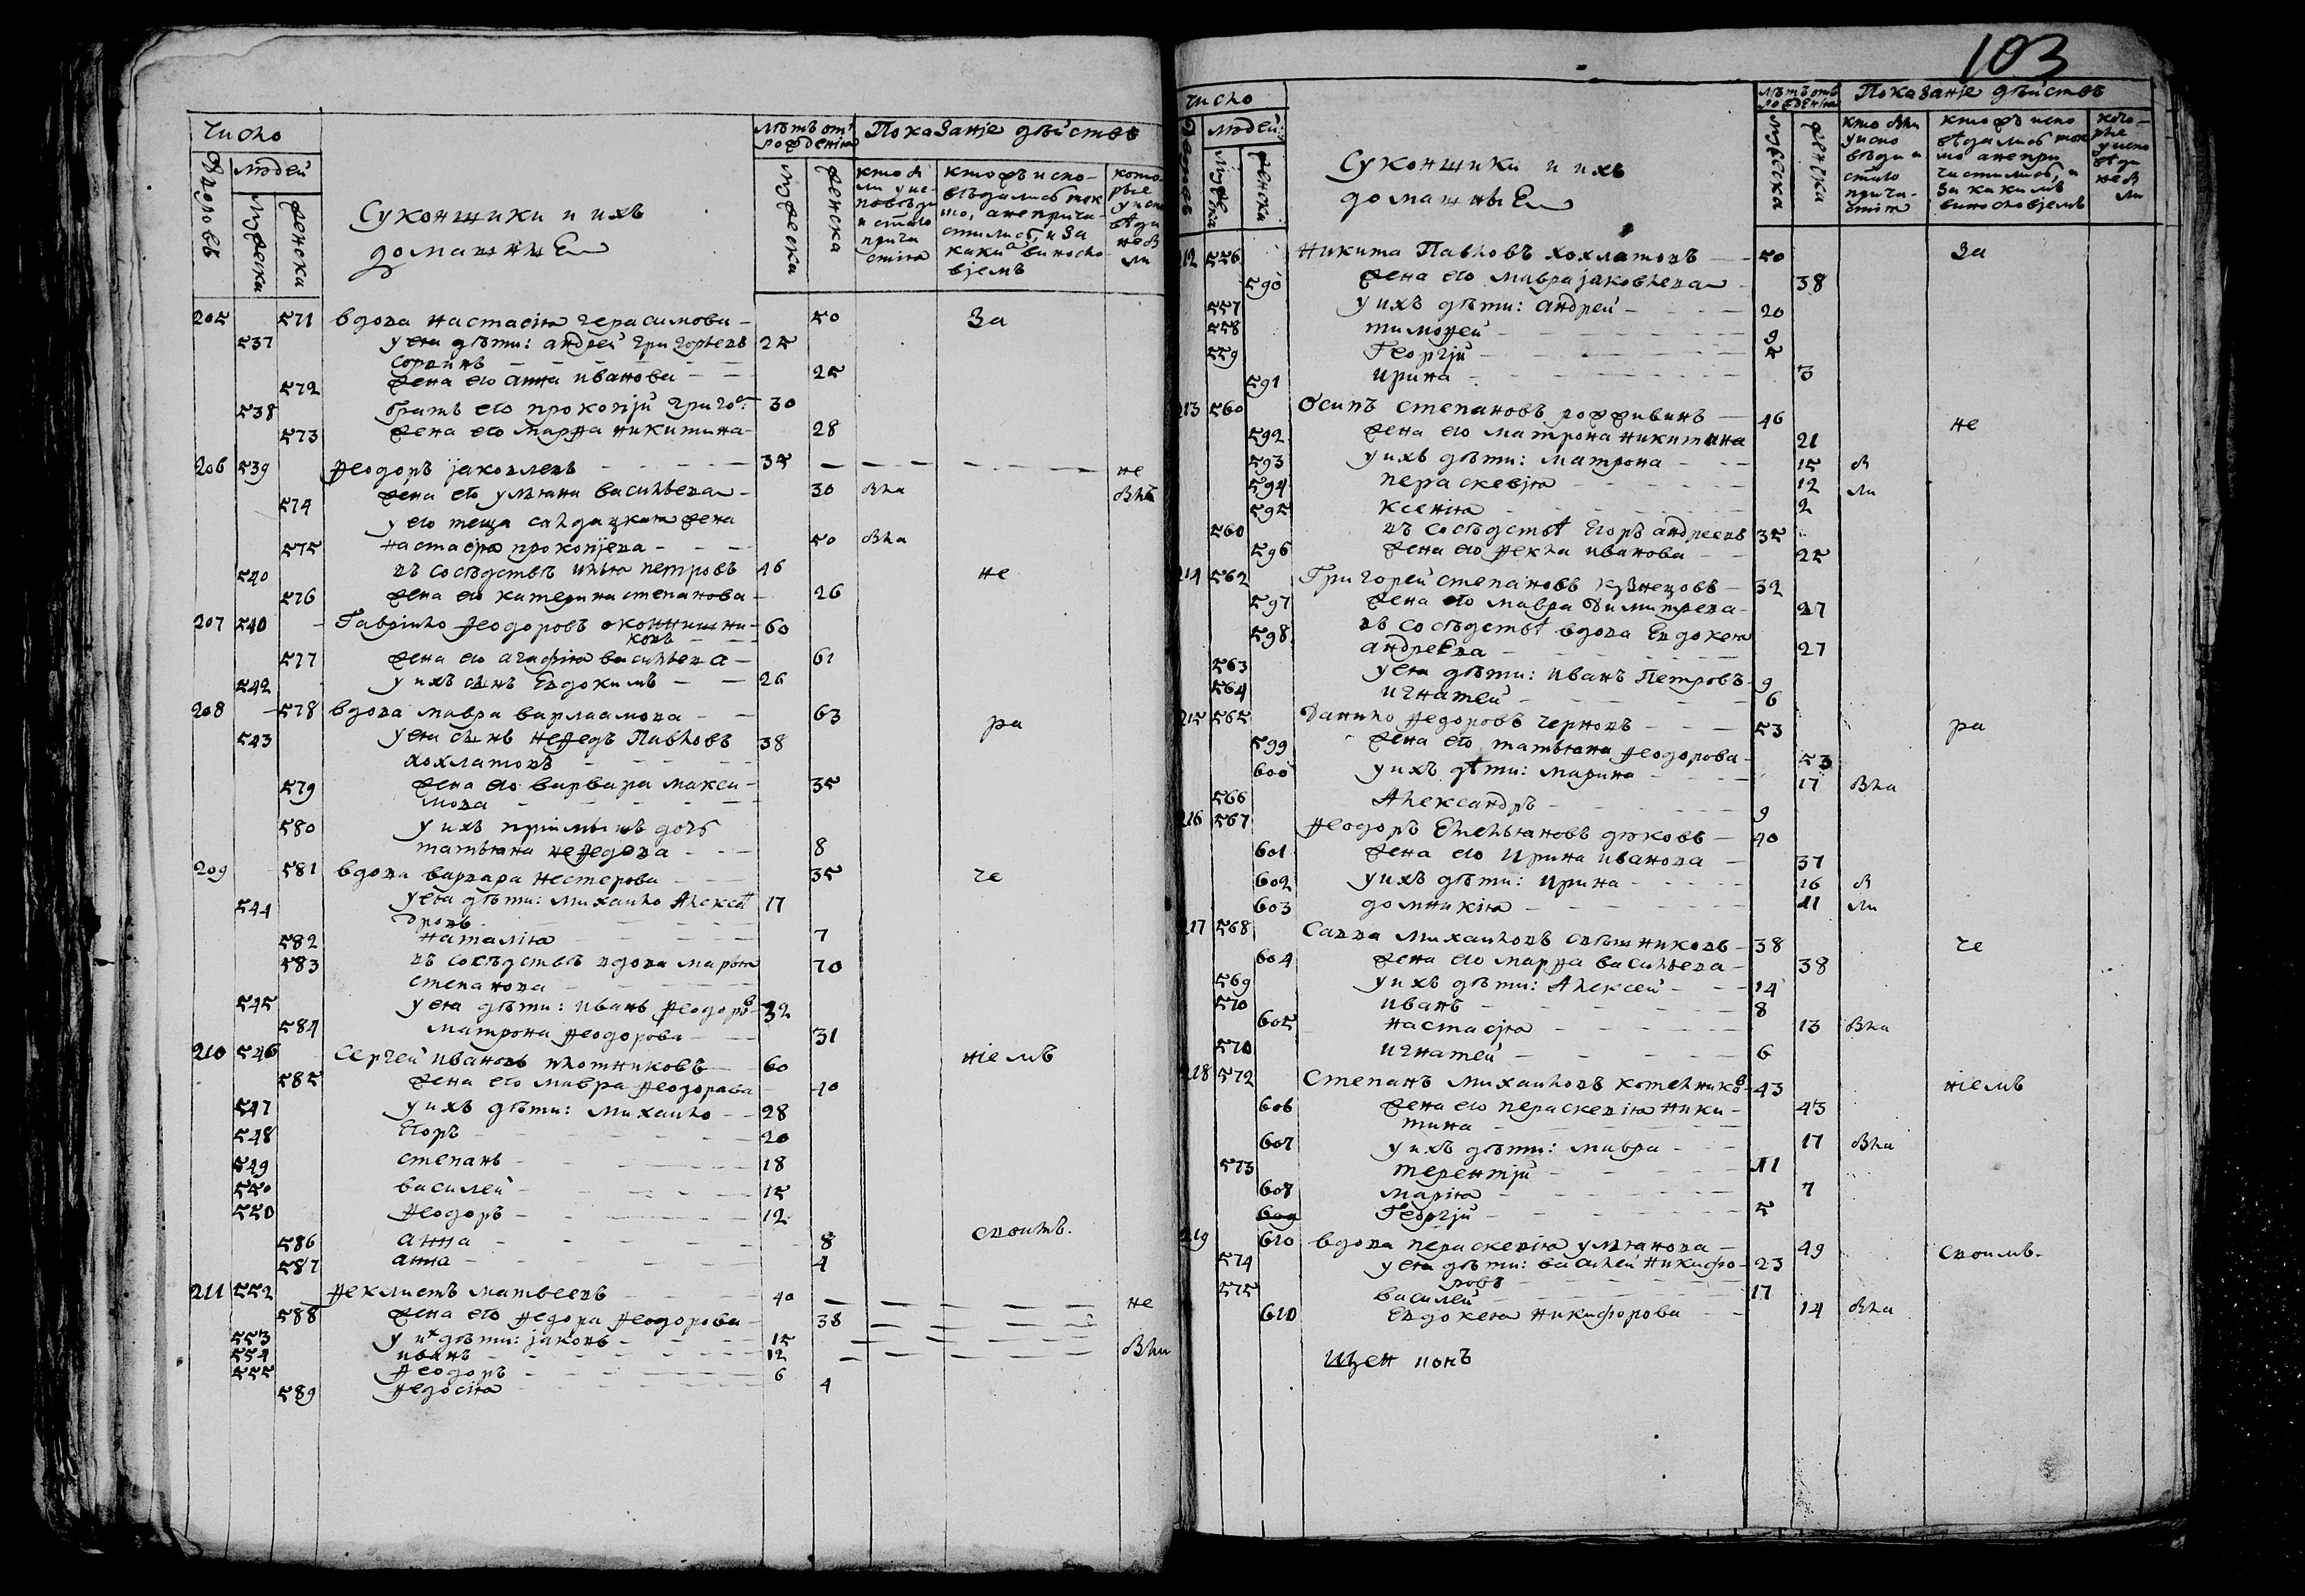 103
Число
Дворовъ
людей
мужеска
женска
Суконщики и ихъ
домашныЕ
лѣтъ отъ
рожденiя
мужеска
женска
Показанiе дѣйствъ
кто бы
ли у ис
повѣди
и стаго
прича
стiя
кто жъ испо-
вѣдались ток
мо, а неприча-
стились, и за
каки виносло
вjемъ
кото-
рые
у испо
вѣди
не бы
ли
205 571 вдова настасiя герасимова - 50 За
537 у ея дѣти: андрей григорьевъ 25
572 жена его анна иванова - 25
538 братъ его прокопjй григо: 30
573 жена его марѳа никитина - 28
206 539 ѳеодоръ jаковлевъ - 35 не
574 жена его улiяна васильева - 30 была
у его теща салдацкая жена
575 настасjя прокопjева - 50 была
540 въ сосѣдствѣ илья петровъ 46 не
576 жена его катерина степанова - 26
207 540 Гаврило ѳеодоровъ оконнишни-
ковъ 60
577 жена его агафiя васильева - 61
542 у ихъ сынъ Евдокимъ - 26
208 578 вдова мавра варлаамова - 63 ра
543 у ея сынъ неѳедъ Павловъ 38
хохлатовъ
579 жена его варвара макси-
мова 35
580 у ихъ прiимышъ дочь
татьяна неѳедова - 8
209 581 вдова варвара нестерова - 35 че
544 у ея дѣти: михаило Алексѣ 17
дровъ
582 наталiя - 7
583 въ сосѣдствѣ вдова марья 70
степанова
545 у ея дѣти: иванъ ѳеодоровъ 32
584 матрона ѳеодорова - 31
210 546 Сергей ивановъ плотниковъ - 60 нiемъ
585 жена его мавра ѳеодорова 40
547 у ихъ дѣти: михаило - 28
548 Егоръ - 20
549 степанъ - 18
550 василей - 15
550 ѳеодоръ - 12
586 анна - 8 своимъ.
587 анна - 4
211 552 ѳеклистъ матвеевъ - 40 не
588 жена его ѳедора ѳеодорова - 38
553 у их дѣти: jаковъ - 15 были
554 иванъ - 12
555 ѳеодоръ - 6
589 ѳедосiя - 4
Число
людей
мужеска
женска
Суконщики и ихъ
домашныЕ
лѣтъ отъ
рожденiя
мужеска
женска
Показанiе дѣйствъ
кто бы
у испо
вѣди и
стаго
прича-
стiя
кто жъ испо
вѣдались ток
мо а непри
частились, и
за какимъ
винословjемъ
кото-
рые
у испо
вѣди
не бы
ли
212 556 Никита Павловъ хохлатовъ - 50 За
590 жена его мавра jаковлева - 38
557 у ихъ дѣти: андрей - 20
558 тимоѳей - 9
559 Георгjй - 5
591 ирина - 3
213 560 Осипъ степановъ 46 не
592 жена его матрона никитина 21
593 у ихъ дѣти: матрона - 15 бы
594 параскевjя - 12 ли
595 ксенiя - 2
560 въ сосѣдствѣ Егоръ андреевъ 35
596 жена его ѳекла иванова - 25
214 562 Григорей степановъ кузнецовъ - 32
597 жена его мавра димитрева - 27
598 въ сосѣдствѣ вдова Евдокея
андреЕва - 27
563 у ея дѣти: иванъ Петровъ - 9
564 игнатей - 6
215 565 Данило ѳедоровъ черновъ - 53 ра
599 жена его татьяна ѳеодорова - 53
600 у ихъ дѣти: марина - 17 была
566 Александръ - 9
216 567 ѳеодоръ Емельяновъ дяковъ - 40
601 жена его ирина иванова - 37
602 у ихъ дѣти: ирина - 16 бы
603 домникiя - 11 ли
217 568 Савва михаиловъ свѣшниковъ - 38 че
604 жена его марѳа васильева - 38
569 у ихъ дѣти: Алексей - 14
570 иванъ - 8
605 настасjя - 13 была
570 игнатей - 6
218 572 Степанъ михаиловъ котельниковъ - 43 нiемъ
606 жена его параскевiя ники-
тина 43
607 у ихъ дѣти: мавра - 17 была
573 терентjй - 11
608 марiя - 7
609 Георгjй - 5
219 610 вдова параскевiя улiянова - 49 своимъ.
574 у ея дѣти: василей никифо-
ровъ 23
575 василей - 17
610 Евдокея никифорова - 14 была
попъ